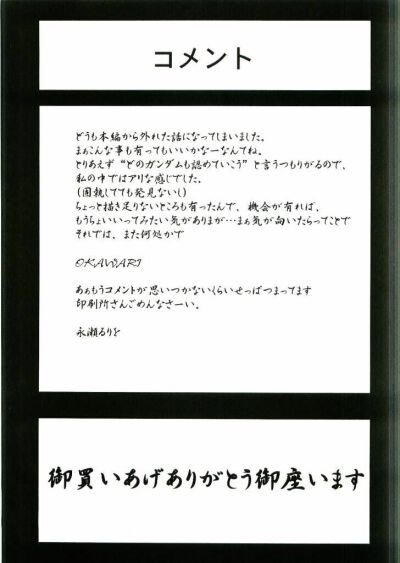 コメント
どうも本編から外れた話になってしまいました。
まぁこんな事も有ってもいいかなーなんてね。
とりあえず“どのガンダムも認めていこう”と言うつもりがるので、
私の中ではアリな感じでした。
(固執してても発見ないし)
ちょっと描き足りないところも有ったんで、機会が有れば、
もうちょいいってみたい気がありまが…まぁ気が向いたらってことで
それでは、また何処かで
OKAWARI
あぁもうコメントが思いつかないくらいせっぱつまってます
印刷所さんごめんなさーい。
永瀬るりを
御買いあげありがとう御座います